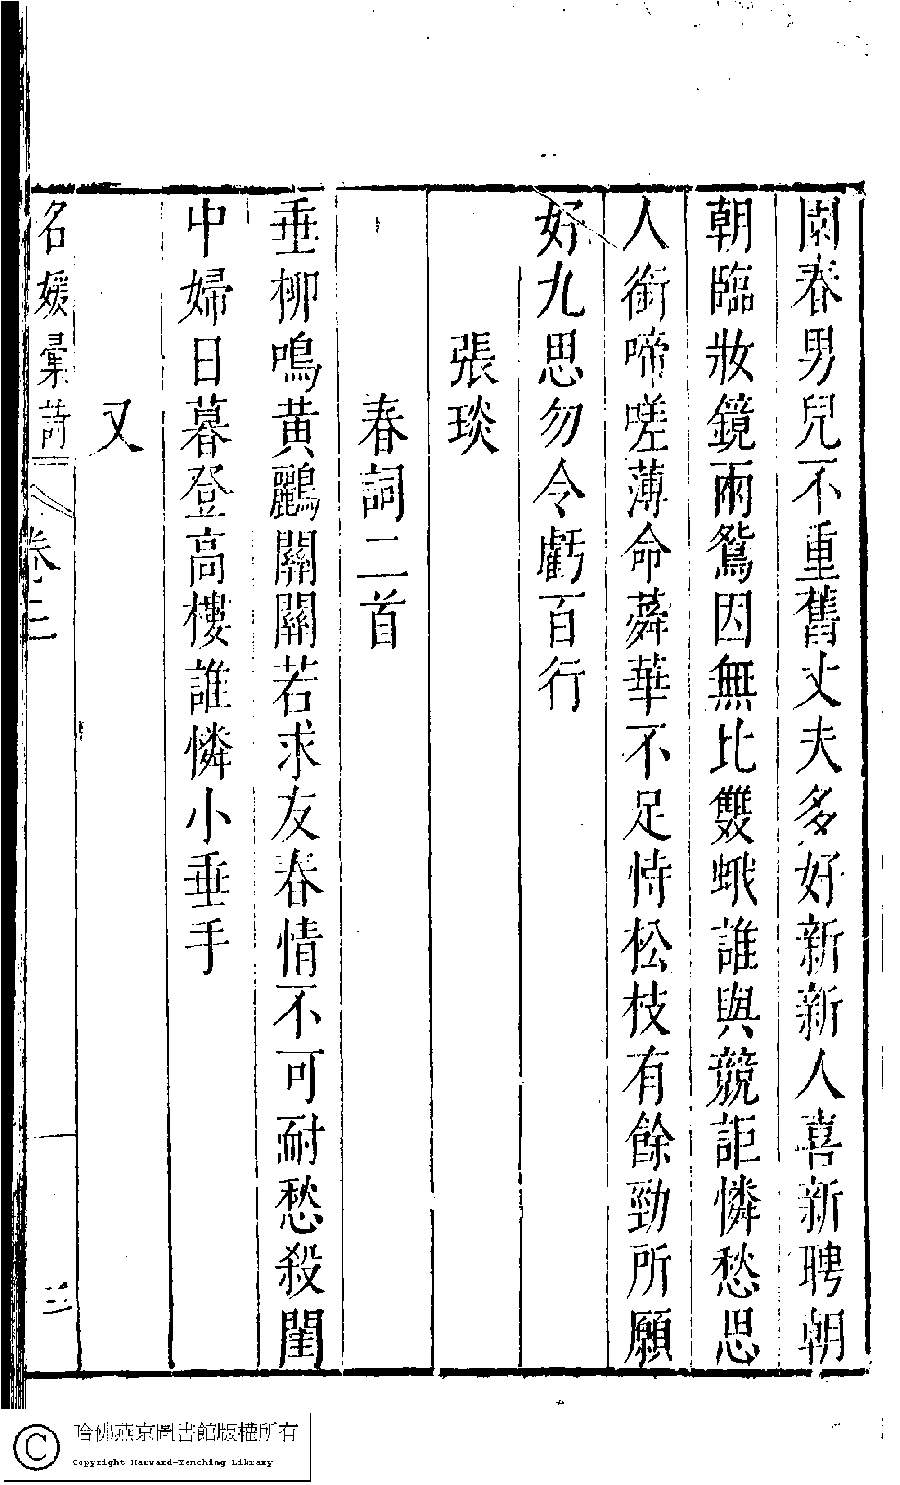 園春男兒不重舊丈夫多好新新人喜新聘朝
朝臨妝鏡兩鴛因無比雙蛾誰與競詎憐愁思
人銜啼嗟薄命蕣華不足恃松枝有餘勁所願
好九思勿令虧百行
張琰
春詞二首
垂柳鳴黃鸝關關若求友春情不可耐愁殺閨
中婦日暮登高樓誰憐小垂手
又
名媛彙詩 卷二 三
哈佛燕京圖書館版權所有
Copyright Harvard-Yenching Library